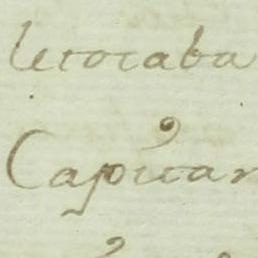 letocaba
Capitan